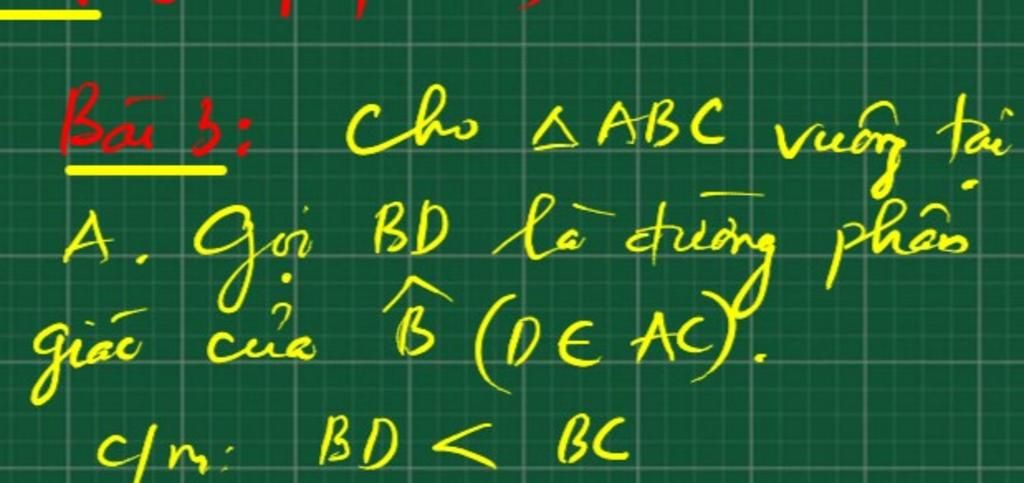 Bài 3: Cho △ABC vuông tại
A. Gọi BD là đường phân
giác của B̂ (D ∈ AC).
c/m: BD < BC